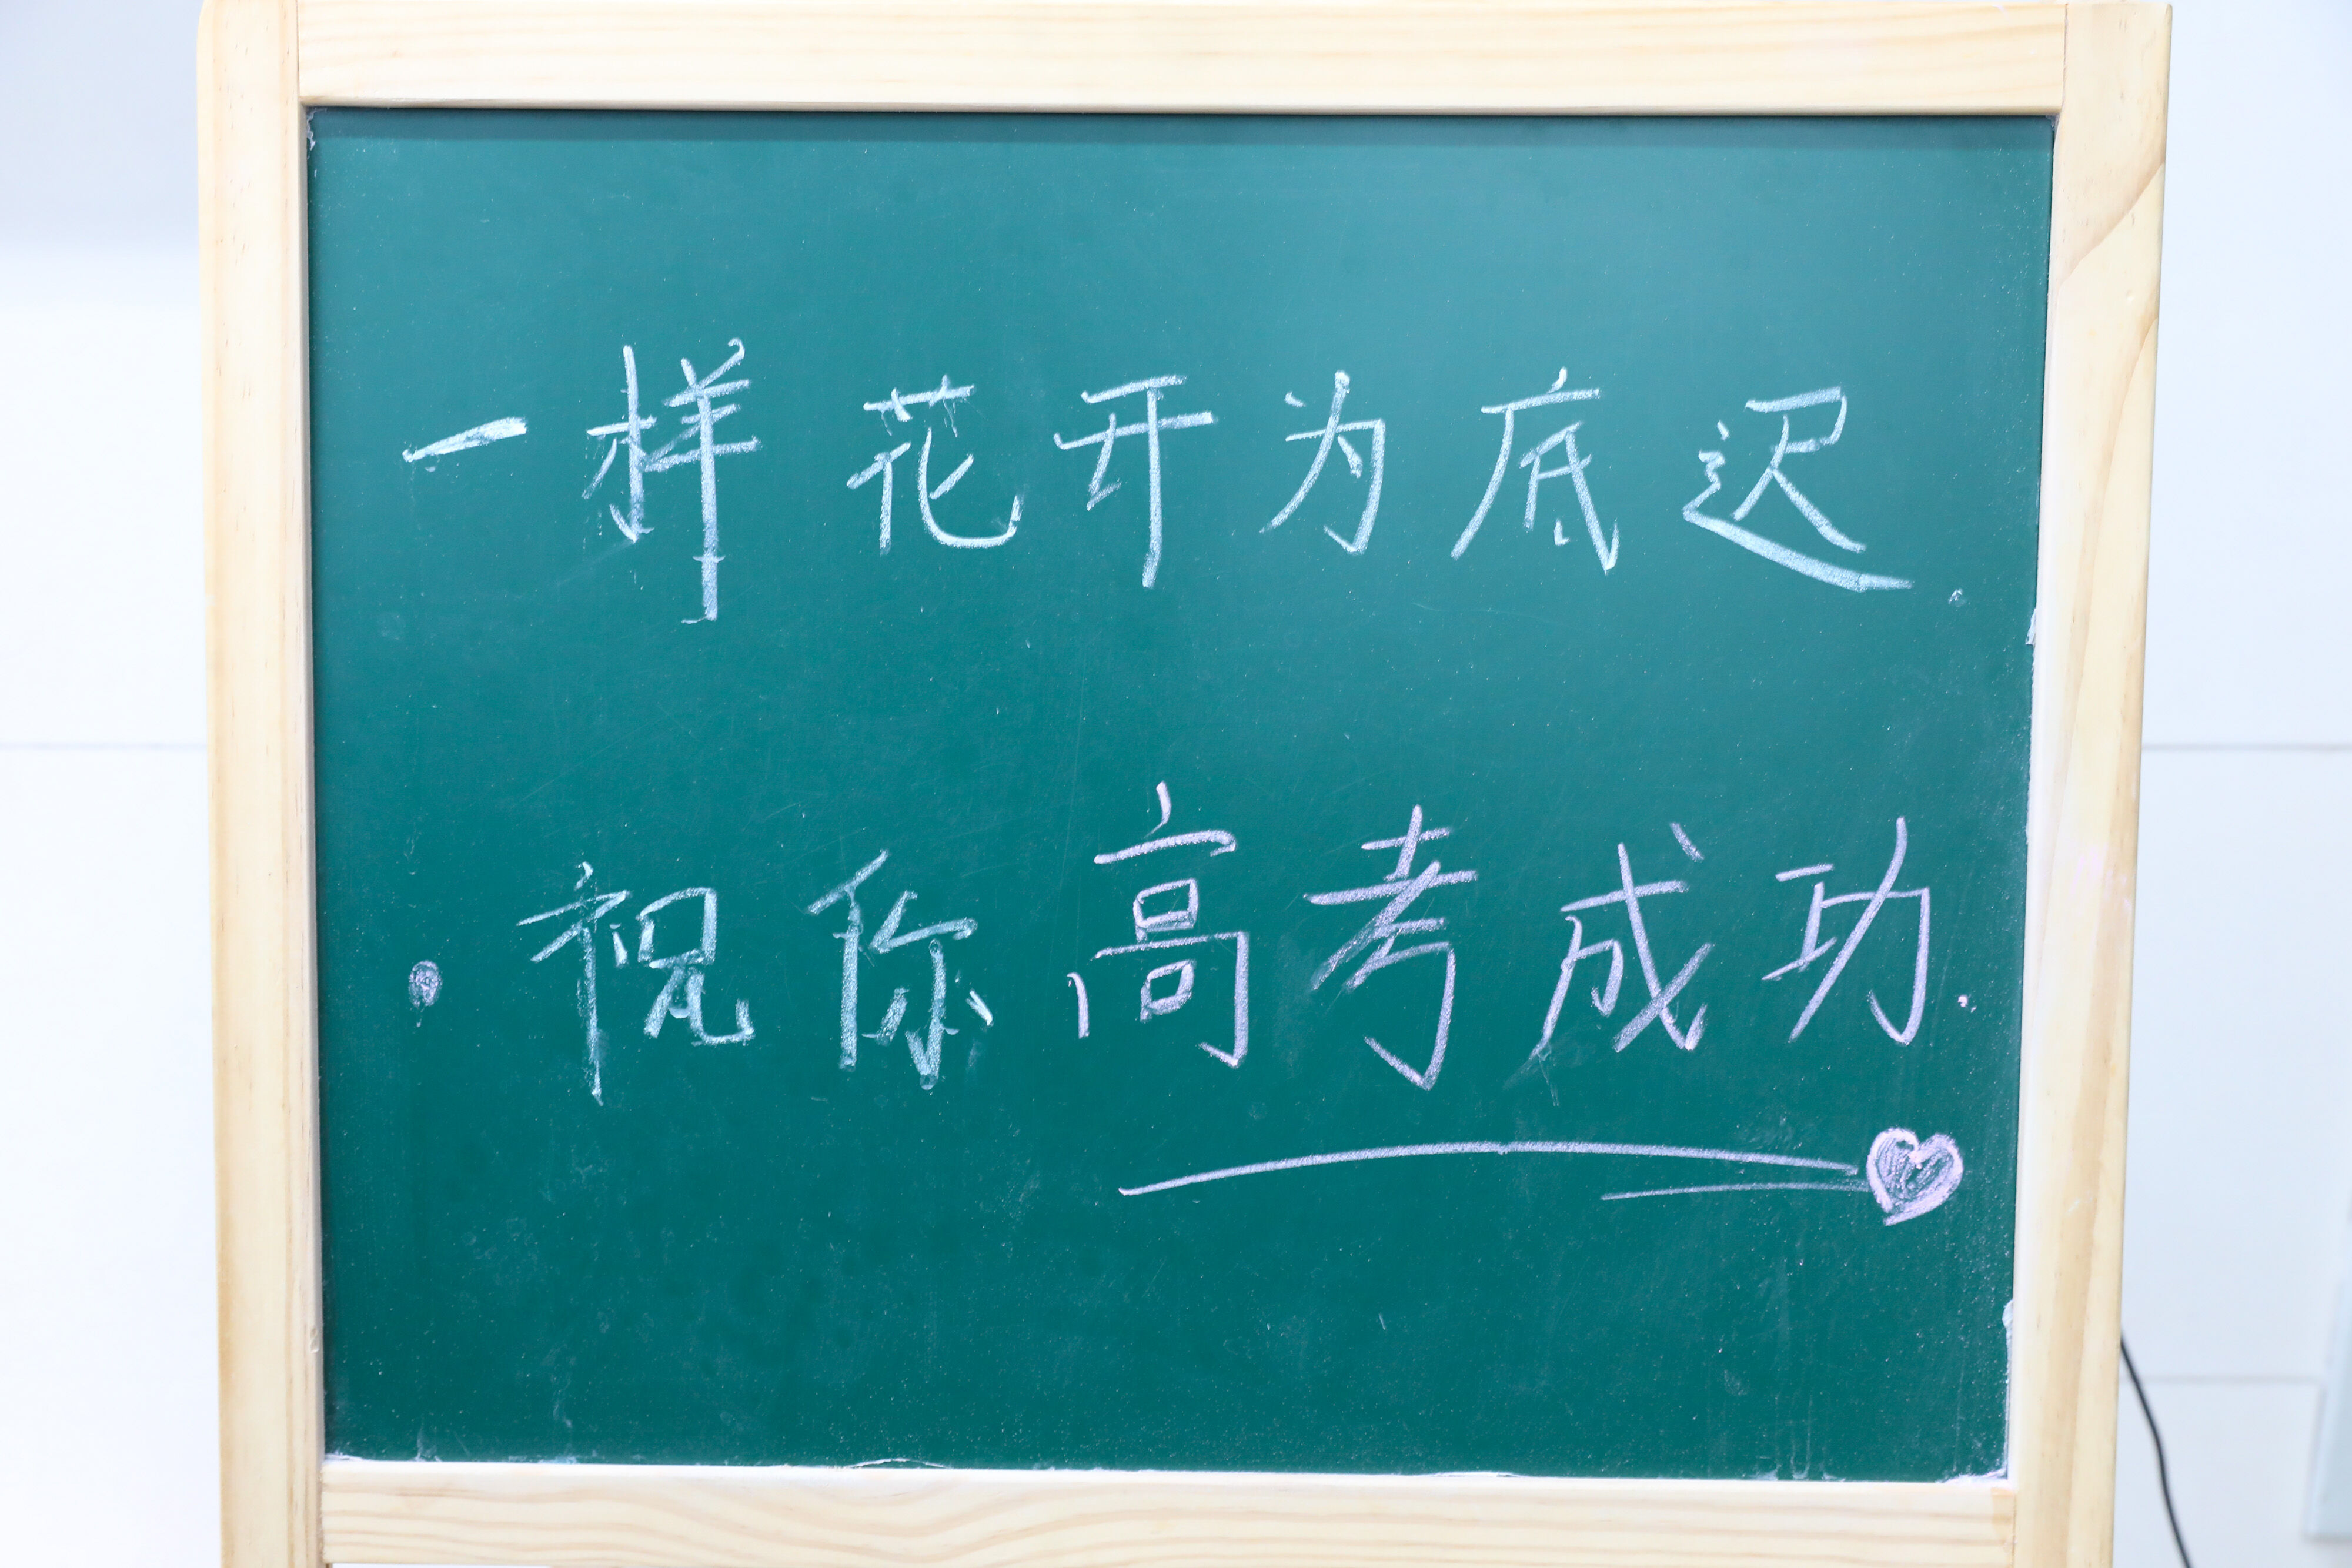 一样花开为底迟.
·祝你高考成功.